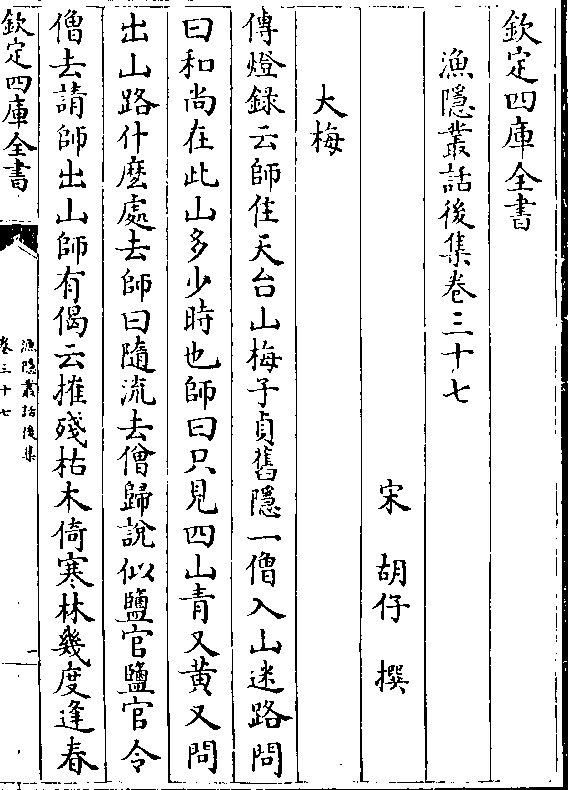 欽定四庫全書
漁隱叢話後集卷三十七
宋 胡仔 撰
大梅
傳燈録云師住天台山梅子貞舊隱一僧入山迷路問
曰和尚在此山多少時也師曰只見四山青又黄又問
出山路什麽處去師曰隨流去僧歸說似鹽官鹽官令
僧去請師出山師有偈云摧殘枯木倚寒林幾度逢春
欽定四庫全書
漁隱叢話後集
卷三十七
一